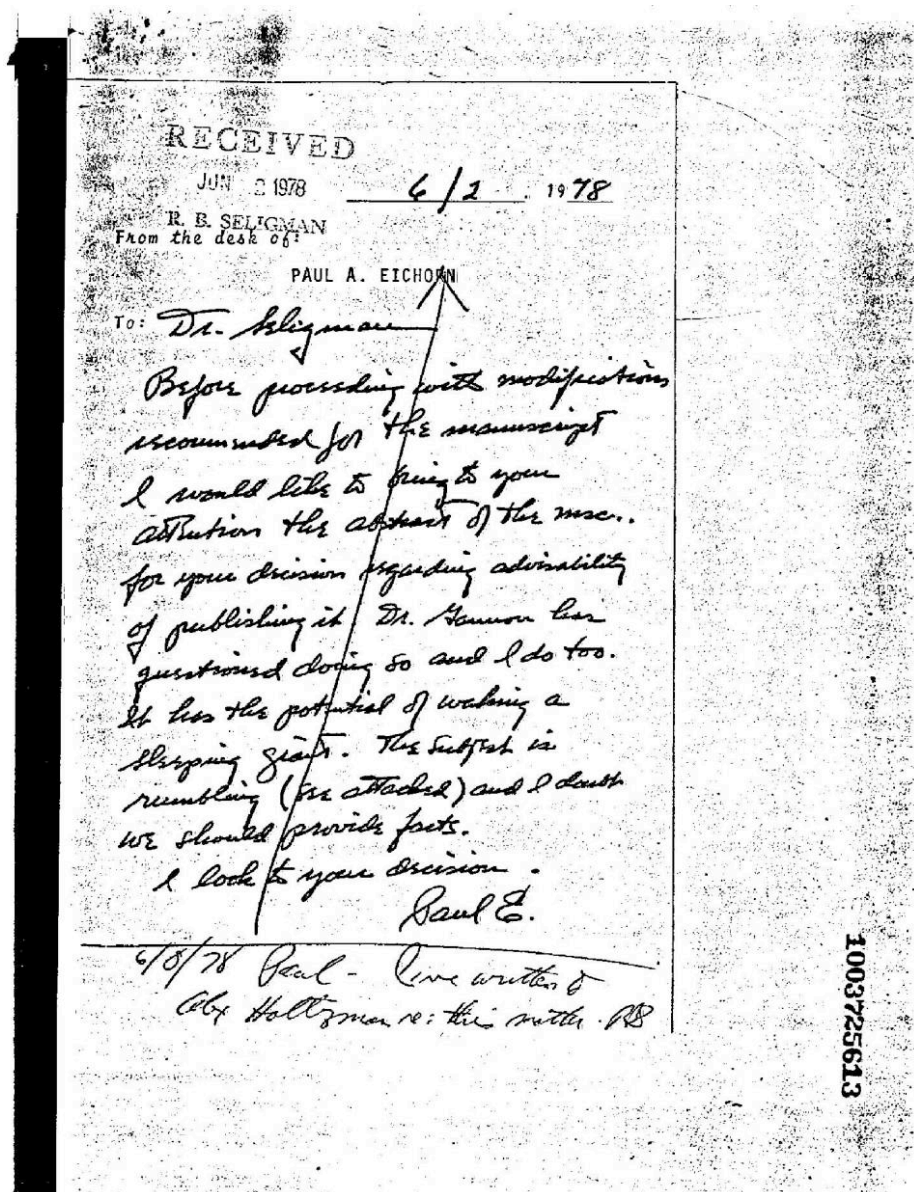 RECEIVED
JUN 2 1978
6/2 1978
R. B. SELIGMAN
From the desk of:
PAUL A. EICHORN
To: Dr. Seligman
Before proceeding with modifications
recommended for the manuscript
I would like to bring to your
attention the abstract of the msc..
for your decision regarding advisability
of publishing it. Dr. Gannon has
questioned doing so and I do too.
It has the potential of waking a
sleeping giant. The subject is
rumbling (see attached) and I doubt
we should provide facts.
I look to your decision.
Paul E.
6/8/78 Paul - I've written to
Alex Holtzman re: this matter. RBS
1003725613